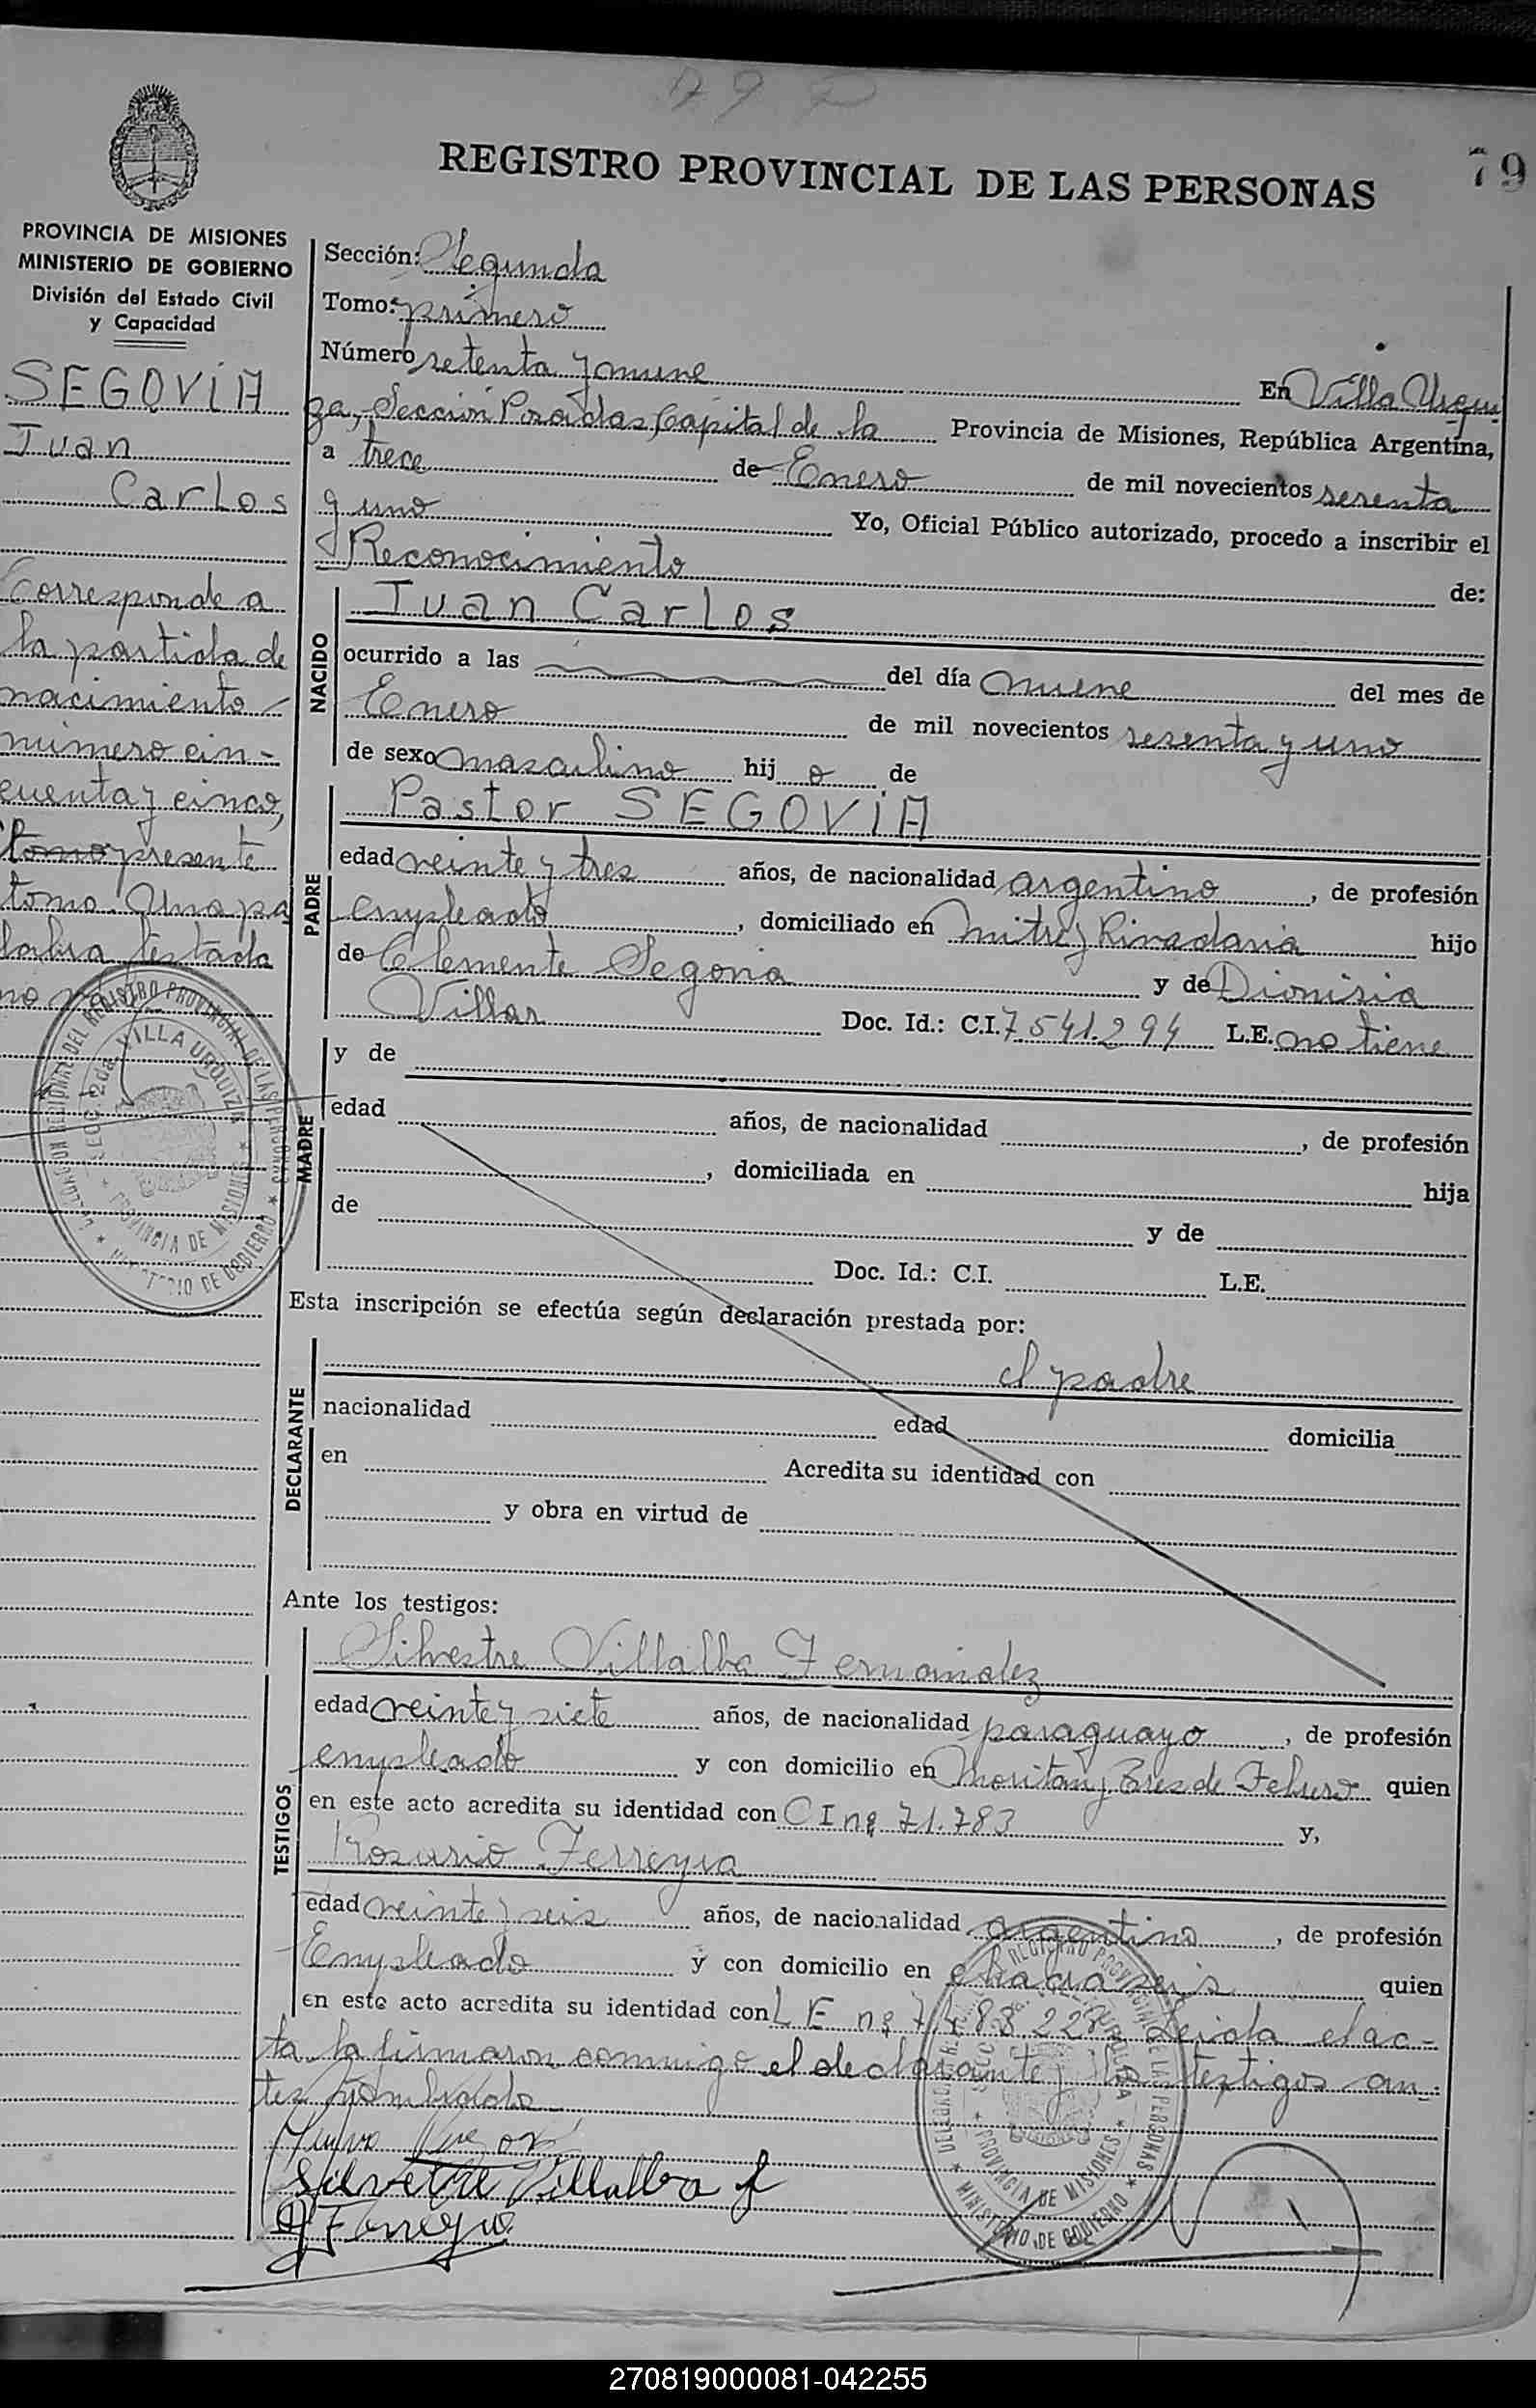 79
REGISTRO PROVINCIAL DE LAS PERSONAS
79
PROVINCIA DE MISIONES
MINISTERIO DE GOBIERNO
División del Estado Civil
y Capacidad
SEGOVIA
Juan
Carlos
Corresponde a
la partida de
nacimiento
número cin-
cuenta y cinco,
tomo presente
tomo. Una pa
labra testada
no
Sección: Segunda
Tomo: primero
Número setenta y nueve En Villa Urqui
za, Sección Posadas, Capital de la Provincia de Misiones, República Argentina,
a trece de Enero de mil novecientos sesenta
y uno Yo, Oficial Público autorizado, procedo a inscribir el
Reconocimiento de:
NACIDO
Juan Carlos
ocurrido a las del día nueve del mes de
Enero de mil novecientos sesenta y uno
de sexo masculino hijo de
PADRE
Pastor SEGOVIA
edad veinte y tres años, de nacionalidad argentino, de profesión
empleado, domiciliado en Mitre y Rivadavia hijo
de Clemente Segovia y de Dionisia
Villar Doc. Id.: C.I. 7541.294 L.E. no tiene
MADRE
y de
edad años, de nacionalidad , de profesión
, domiciliada en hija
de y de
Doc. Id.: C.I. L.E.
Esta inscripción se efectúa según declaración prestada por:
DECLARANTE
el padre
nacionalidad edad domicilia
en Acredita su identidad con
y obra en virtud de
Ante los testigos:
TESTIGOS
Silvestre Villalba Fernandez
edad veinte y siete años, de nacionalidad paraguayo, de profesión
empleado y con domicilio en y Tres de Febrero quien
en este acto acredita su identidad con CI nº 71.783 y,
Rosario Ferreyra
edad veinte y seis años, de nacionalidad argentino, de profesión
Empleado y con domicilio en chacra seis quien
en este acto acredita su identidad con L E nº Leida el ac-
ta la firmaron conmigo el declarante y los testigos an-
tes nombrados
Silvestre Villalba f
Ferreyra
DELEGACION SECCIONAL DEL REGISTRO PROVINCIAL DE LAS PERSONAS
SECC. 2da. VILLA URQUIZA
PROVINCIA DE MISIONES
MINISTERIO DE GOBIERNO
REGISTRO PROVINCIAL DE LAS PERSONAS
PROVINCIA DE MISIONES
MINISTERIO DE GOBIERNO
270819000081-042255